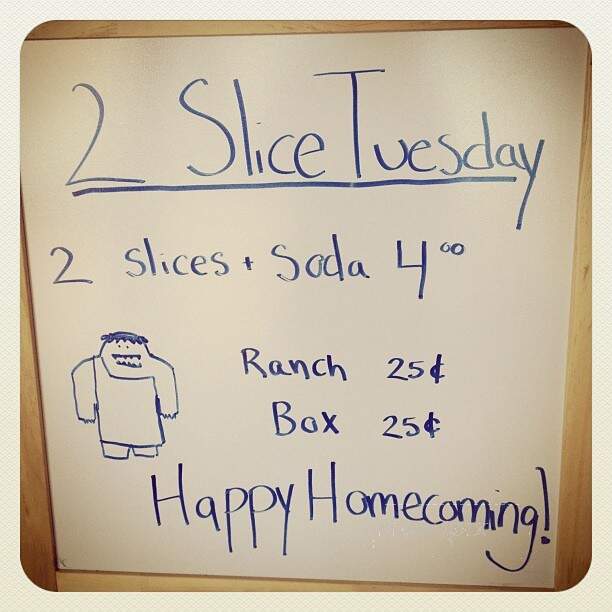 2 Slice Tuesday
2 slices + Soda 4⁰⁰
Ranch 25¢
Box 25¢
Happy Homecoming!